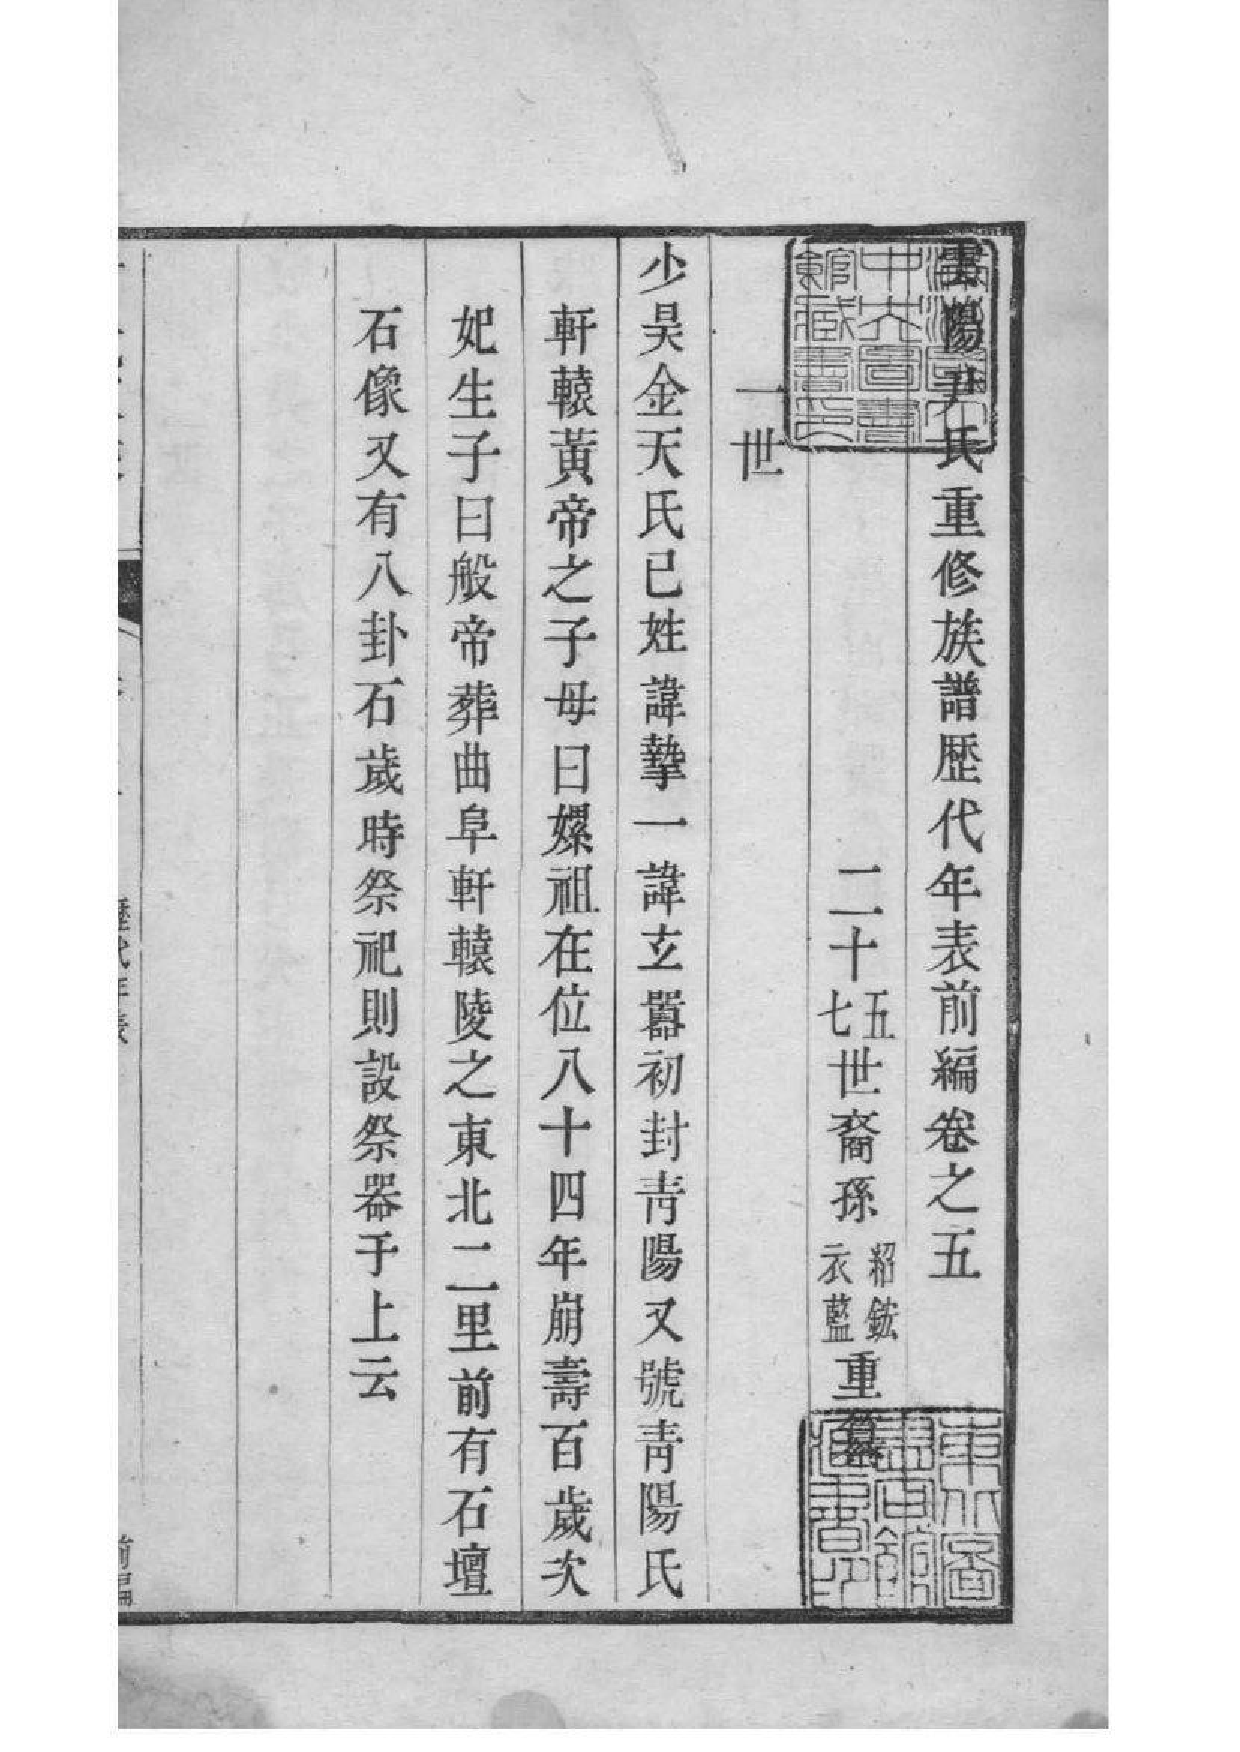 雲陽尹氏重修族譜歷代年表前編卷之五
二十五七世裔孫紹鋐衣藍重纂
一世
少昊金天氏已姓諱摯一諱玄囂初封青陽又號青陽氏
軒轅黃帝之子母曰嫘祖在位八十四年崩壽百歲次
妃生子曰般帝葬曲阜軒轅陵之東北二里前有石壇
石像又有八卦石歲時祭祀則設祭器于上云
歷代年表
前編